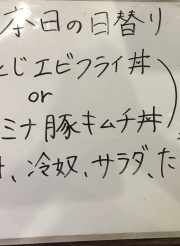 本日の日替り
とじエビフライ丼
or
ミナ豚キムチ丼
、冷奴、サラダ、た